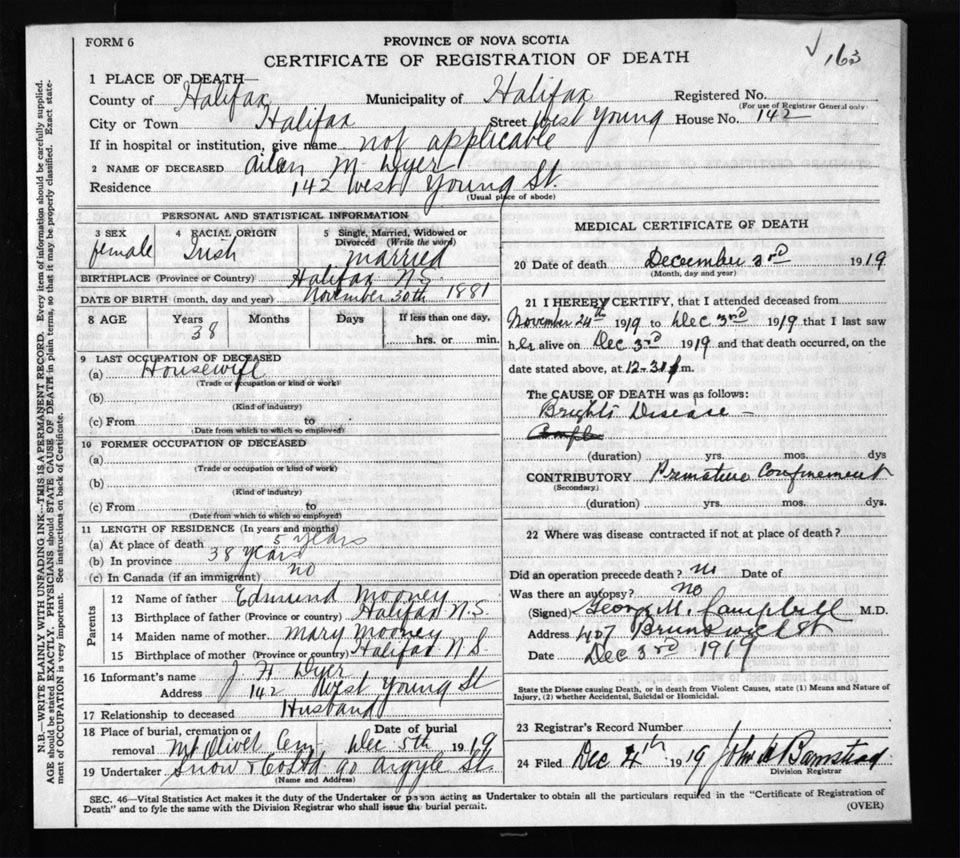 FORM 6
PROVINCE OF NOVA SCOTIA
CERTIFICATE OF REGISTRATION OF DEATH
✓ 163
1 PLACE OF DEATH—
County of Halifax Municipality of Halifax Registered No.
(For use of Registrar General only)
City or Town Halifax Street West Young House No. 142
If in hospital or institution, give name not applicable
2 NAME OF DECEASED Ailen M Dyer
Residence 142 West Young St.
(Usual place of abode)
PERSONAL AND STATISTICAL INFORMATION
3 SEX female
4 RACIAL ORIGIN Irish
5 Single, Married, Widowed or Divorced (Write the word) married
BIRTHPLACE (Province or Country) Halifax N.S.
DATE OF BIRTH (month, day and year) November 30th 1881
8 AGE Years 38 Months Days If less than one day, hrs. or min.
9 LAST OCCUPATION OF DECEASED
(a) Housewife
(Trade or occupation or kind or work)
(b)
(Kind of industry)
(c) From to
(Date from which to which so employed)
10 FORMER OCCUPATION OF DECEASED
(a)
(Trade or occupation or kind of work)
(b)
(Kind of industry)
(c) From to
(Date from which to which so employed)
11 LENGTH OF RESIDENCE (In years and months)
(a) At place of death 5 years
(b) In province 38 years
(c) In Canada (if an immigrant) no
Parents
12 Name of father Edmund Mooney
13 Birthplace of father (Province or country) Halifax N.S.
14 Maiden name of mother Mary Mooney
15 Birthplace of mother (Province or country) Halifax N S.
16 Informant's name J. H Dyer
Address 142 West Young St
17 Relationship to deceased Husband
18 Place of burial, cremation or removal Mt Olivet Cem Date of burial Dec 5th 1919
19 Undertaker Snow & Co Ltd 90 Argyle St.
(Name and Address)
MEDICAL CERTIFICATE OF DEATH
20 Date of death December 3rd 1919
(Month, day and year)
21 I HEREBY CERTIFY, that I attended deceased from
November 24th 1919 to Dec 3rd 1919 that I last saw
her alive on Dec 3rd 1919 and that death occurred, on the
date stated above, at 12-30 m.
The CAUSE OF DEATH was as follows:
Brights Disease –
(duration) yrs. mos. dys
CONTRIBUTORY Premature Confinement
(Secondary)
(duration) yrs. mos. dys.
22 Where was disease contracted if not at place of death?
Did an operation precede death? no Date of
Was there an autopsy? no
(Signed) George M. Campbell M.D.
Address 407 Brunswick St
Date Dec 3rd 1919
State the Disease causing Death, or in death from Violent Causes, state (1) Means and Nature of
Injury, (2) whether Accidental, Suicidal or Homicidal.
23 Registrar's Record Number
24 Filed Dec 4th 1919 John
Division Registrar
SEC. 46—Vital Statistics Act makes it the duty of the Undertaker or person acting as Undertaker to obtain all the particulars required in the "Certificate of Registration of
Death" and to fyle the same with the Division Registrar who shall issue the burial permit. (OVER)
N.B.—WRITE PLAINLY WITH UNFADING INK—THIS IS A PERMANENT RECORD. Every item of information should be carefully supplied.
AGE should be stated EXACTLY. PHYSICIANS should STATE CAUSE OF DEATH in plain terms, so that it may be properly classified. Exact state-
ment of OCCUPATION is very important. See instructions on back of Certificate.